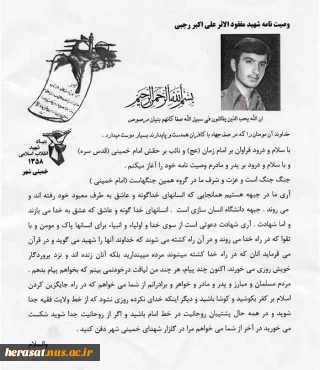 وصیت نامه شهید مفقود الاثر علی اکبر رجبی
بسم الله الرحمن الرحیم
ان الله یحب الذین یقاتلون فی سبیل الله صفا کانهم بنیان مرصوص
خداوند آن مومنان را که در صف جهاد با کافران همدست و پایدارند بسیار دوست میدارد.
با سلام و درود فراوان بر امام زمان (عج) و نائب بر حقش امام خمینی (قدس سره)
و با سلام و درود بر پدر و مادرم وصیت نامه خود را آغاز میکنم.
جنگ جنگ است و عزت و شرف ما در گروه همین جنگهاست (امام خمینی)
آری ما در جبهه هستیم همانجایی که انسانهای خداگونه و عاشق به طرف معبود خود رفته اند و
می روند. جبهه دانشگاه انسان سازی است. انسانهای خدا گونه و عاشق که عشق به خدا می بازند
و اما شهادت. آری شهادت دعوتی است از سوی خدا و اولیاء و انبیاء برای انسانها پاک و مومن و با
تقوا که در راه خدا می روند و در آن راه کشته می شوند که خداوند آنها را شهید می گوید و در قرآن
می فرماید آنان که در راه خدا کشته میشوند مرده میپندارید بلکه آنان زنده اند و نزد پروردگار
خویش روزی می خورند. اکنون چند پیام، هر چند من لیاقت درخودنمی بینم که بخواهم پیام بدهم.
مردم مسلمان و مبارز و پدر و مادر و خواهر و برادرانم از شما می خواهم که در راه جایگزین کردن
اسلام بر کفر بکوشید و کوشا باشید و دیگر اینکه خدای نکرده روزی نشود که از خط ولایت فقیه جدا
شوید و در همه حال پشتیبان روحانیت در خط امام باشید و اگر از روحانیت جدا شوید شکست
می خورید در آخر از شما می خواهم مرا در گلزار شهدای خمینی شهر دفن کنید.
والسلام
بنیاد
شهید
انقلاب اسلامی
۱۳۵۸
خمینی شهر
herasat.nus.ac.ir